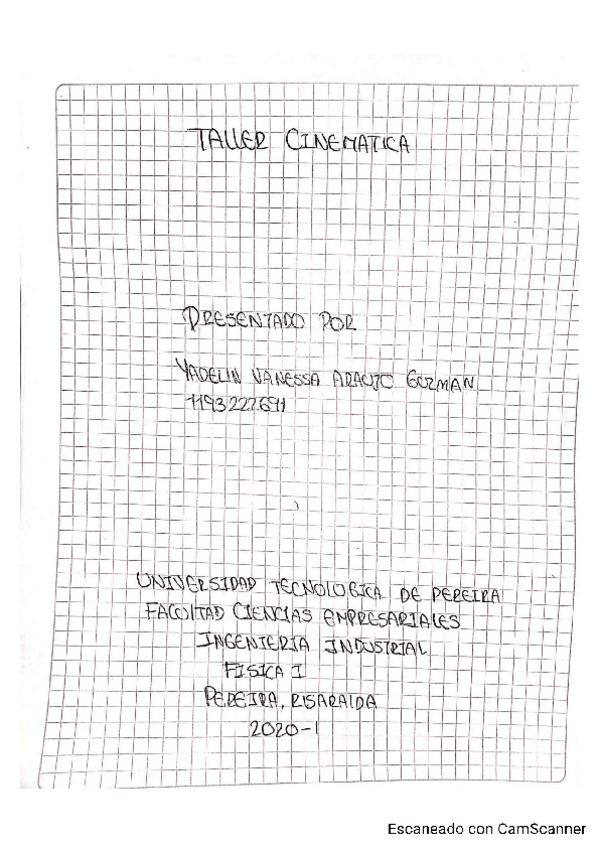 TALLER CINEMATICA
PRESENTADO POR
YADELIN VANESSA ARAUJO GUZMAN
1193227691
UNIVERSIDAD TECNOLOGICA DE PEREIRA
FACULTAD CIENCIAS EMPRESARIALES
INGENIERIA INDUSTRIAL
FISICA I
PEREIRA, RISARALDA
2020-1
Escaneado con CamScanner